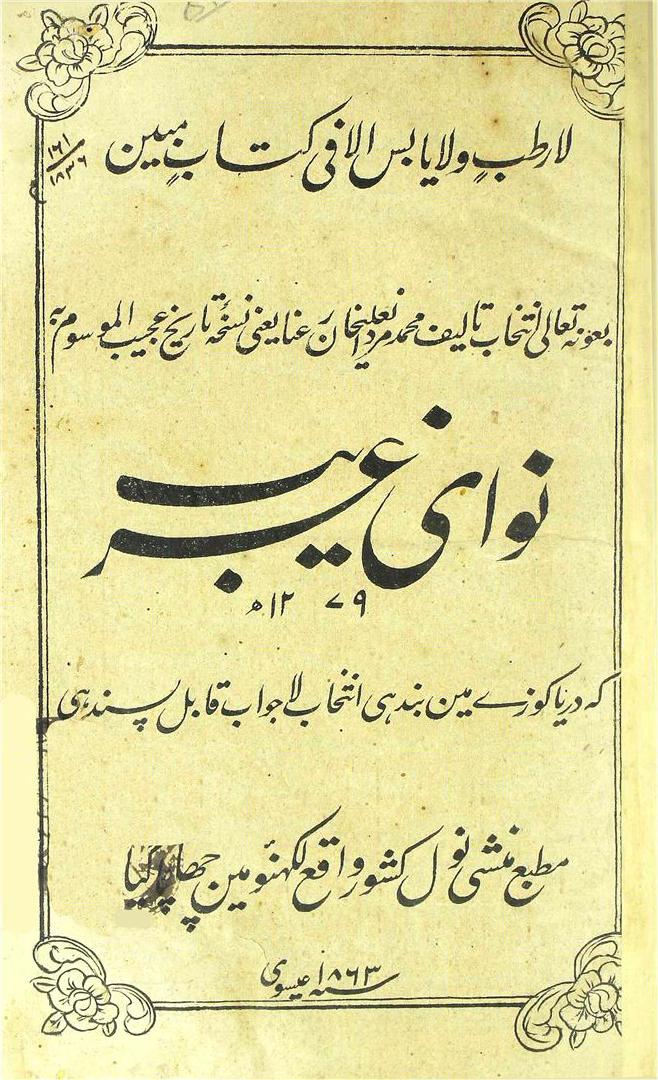 لا رطبٍ ولا یابس الا فی کتابٍ مبین
۱۶۱
۱۸۳۶
بعونہ تعالی انتخاب تالیف محمد مردانعلیخان رعنا یعنی نسخۂ تاریخ عجیب الموسوم بہ
نوای غریب
۱۲۷۹ھ
کہ دریا کوزے مین بند ہی انتخاب لاجواب قابل پسند ہی
مطبع منشی نول کشور واقع لکھنؤ مین چھاپا گیا
سنہ ۱۸۶۳ عیسوی